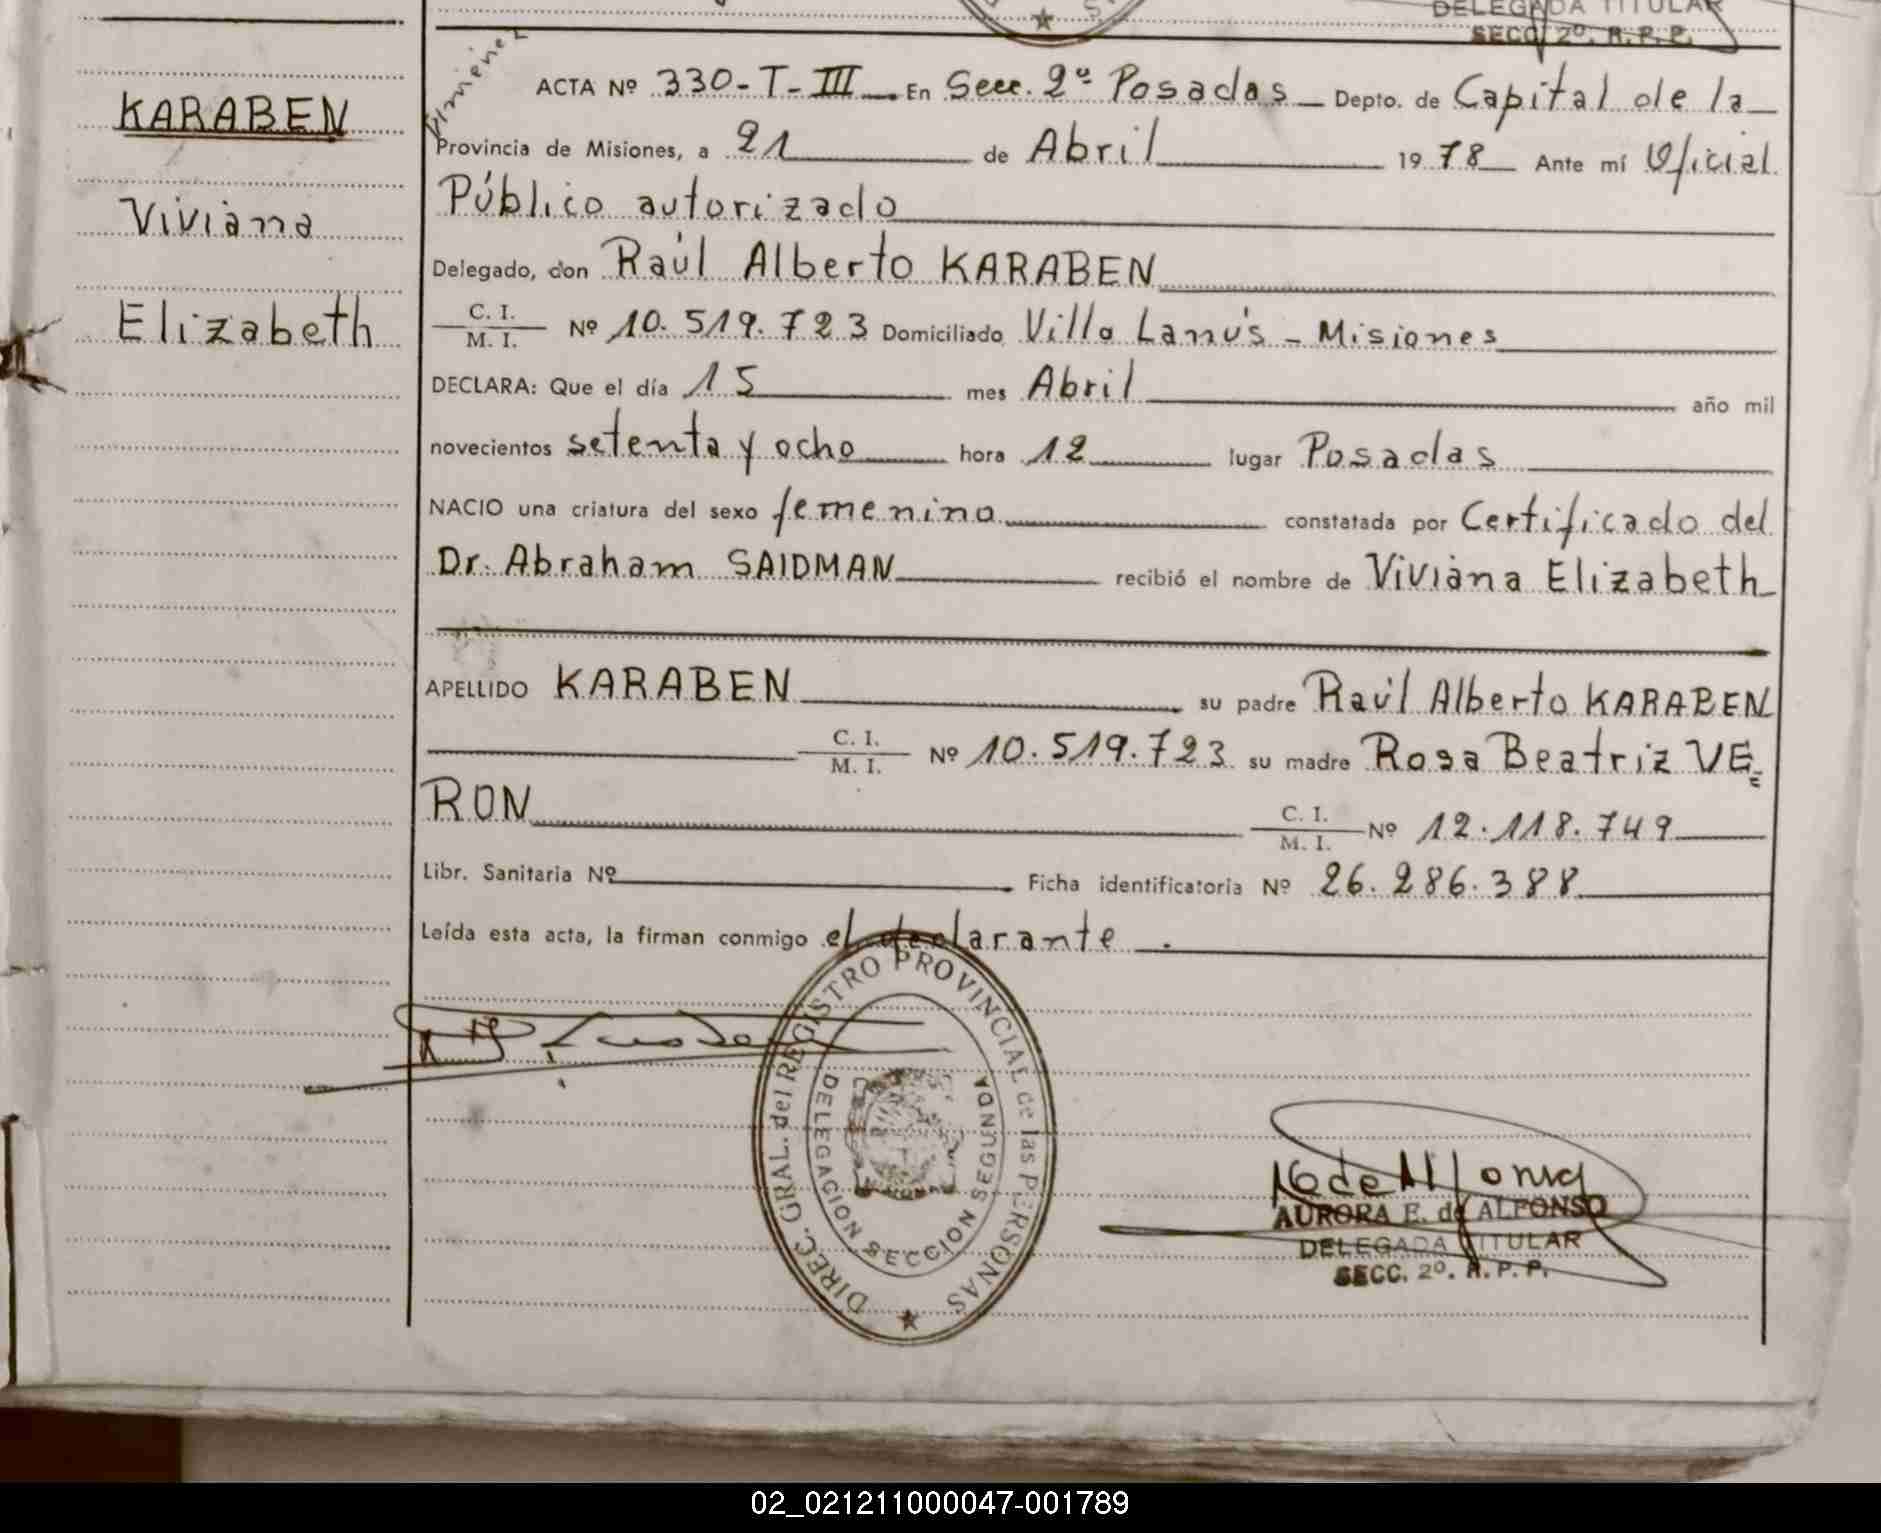 DELEGADA TITULAR
SECC. 2º. R. P. P.
KARABEN
Viviana
Elizabeth
ACTA Nº 330-T-III En Secc. 2º Posadas Depto. de Capital de la
Provincia de Misiones, a 21 de Abril 1978 Ante mí Oficial
Público autorizado
Delegado, don Raúl Alberto KARABEN
C. I.
M. I. Nº 10.519.723 Domiciliado Villa Lanús - Misiones
DECLARA: Que el día 15 mes Abril año mil
novecientos setenta y ocho hora 12 lugar Posadas
NACIO una criatura del sexo femenino constatada por Certificado del
Dr. Abraham SAIDMAN recibió el nombre de Viviana Elizabeth
APELLIDO KARABEN su padre Raúl Alberto KARABEN
C. I.
M. I. Nº 10.519.723 su madre Rosa Beatriz VE=
RON C. I.
M. I. Nº 12.118.749
Libr. Sanitaria Nº Ficha identificatoria Nº 26.286.388
Leída esta acta, la firman conmigo el declarante.
DIREC. GRAL. del REGISTRO PROVINCIAL de las PERSONAS
DELEGACION SECCION SEGUNDA
AURORA E. de ALFONSO
DELEGADA TITULAR
SECC. 2º. R. P. P.
02_021211000047-001789